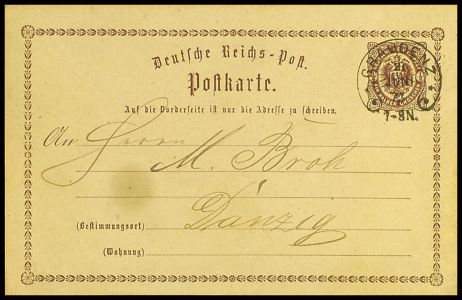 Deutsche Reichs-Post.
Postkarte.
GRAUDENZ
7-8N.
Auf die Vorderseite ist nur die Adresse zu schreiben.
An Herrn
M. Broh
Danzig
(Bestimmungsort)
(Wohnung)